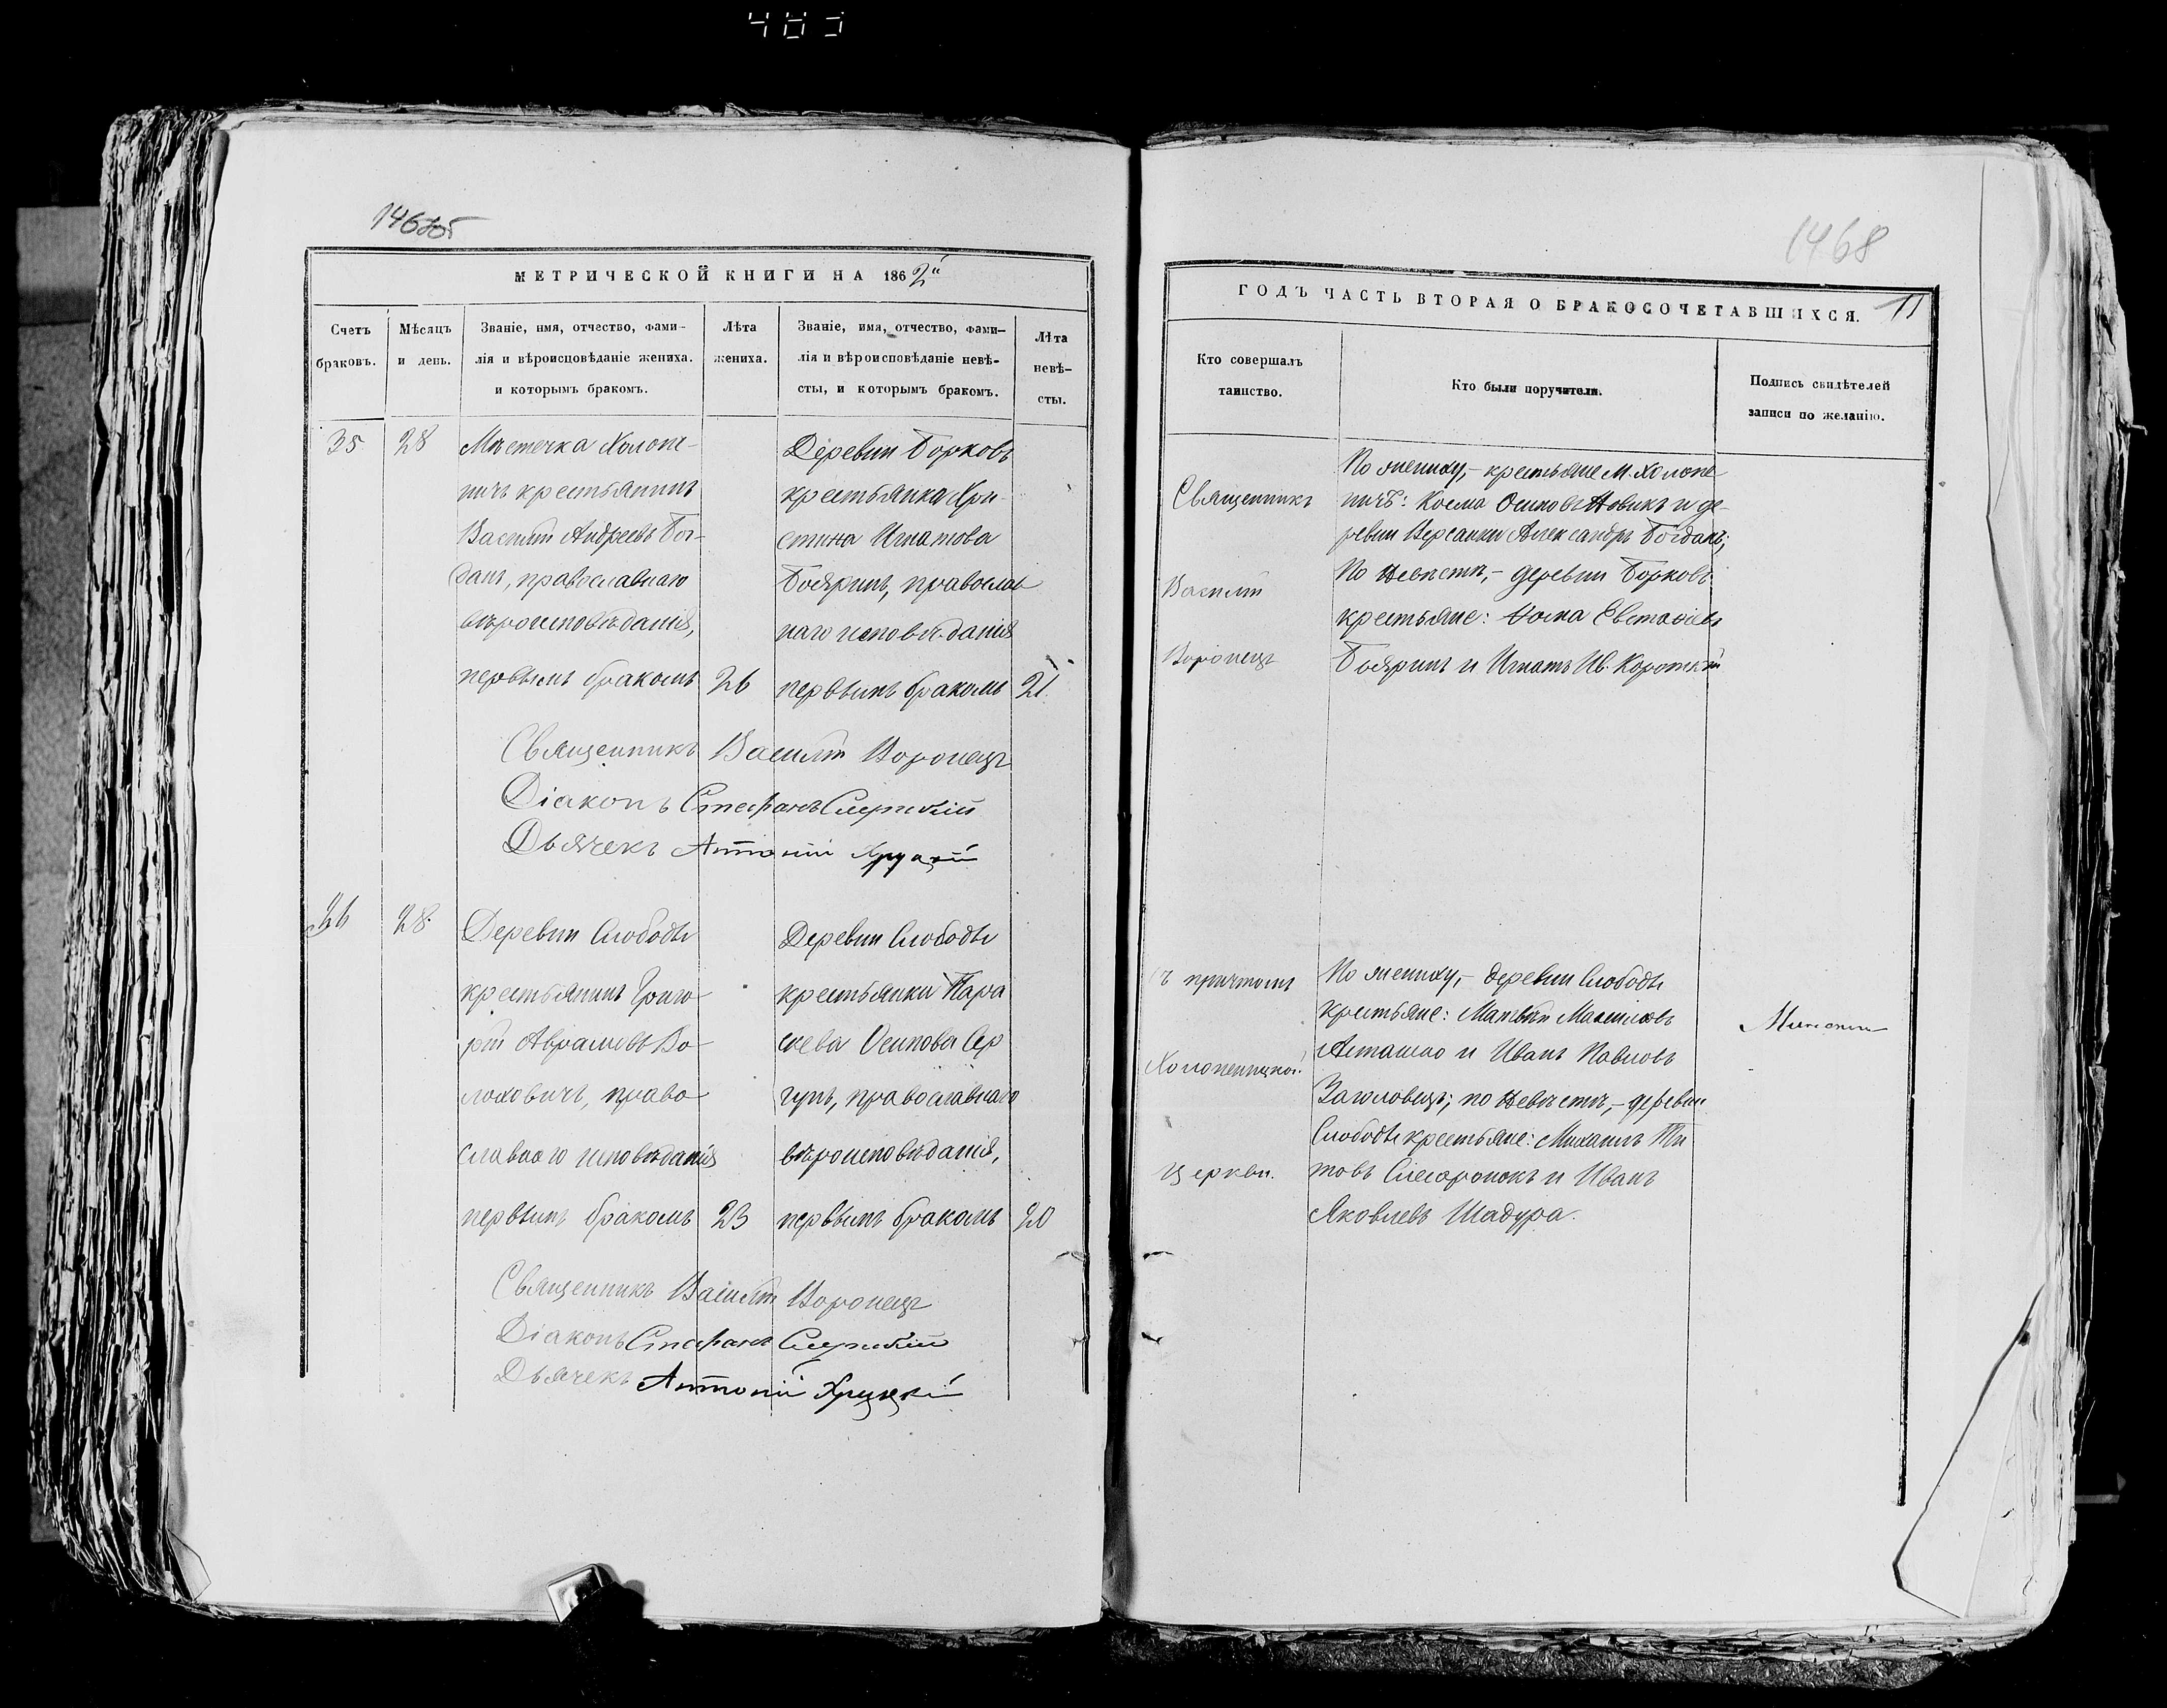 1467об
МЕТРИЧЕСКОЙ КНИГИ НА 1862й
Счетъ браковъ.
Мѣсяцъ и день.
Званіе, имя, отчество, фами-
лія и вѣроисповѣданіе жениха.
и которымъ бракомъ.
Лѣта жениха.
Званіе, имя, отчество, фами-
лія и вѣроисповѣданіе невѣ-
сты, и которымъ бракомъ.
Лѣта невѣ-
сты.
35
28
Мѣстечка Холопе-
ничъ крестьянинъ
Василій Андреевъ Бог-
данъ, православнаго
вѣроисповѣданія,
первымъ бракомъ
26
Деревни Борковъ
крестьянка Хри-
стина Игнатова
Бояринъ, православ
наго исповѣданія
первымъ бракомъ
21.
Священникъ Василій Воронецъ
Діаконъ Стефанъ
Дьячекъ Антоній Хруцкій
36
28.
Деревни Слободы
крестьянинъ Григо-
рій Авраамовъ Во-
лоховичъ, право-
славнаго исповѣданія
первымъ бракомъ
23
Деревни Слободы
крестьянки Пара
скева Осипова Сер
гунъ, православнаго
вѣроисповѣданія,
первымъ бракомъ
20
Священникъ Василій Воронецъ
Діаконъ Стефанъ
Дьячекъ Антоній Хруцкій
1468
ГОДЪ ЧАСТЬ ВТОРАЯ О БРАКОСОЧЕТАВШИХСЯ.
11
Кто совершалъ
таинство.
Кто были поручители.
Подпись свидѣтелей
записи по желанію.
Священникъ
Василій
Воронецъ
По жениху,- крестьяне М. Холопе-
ничъ: Косма Осиповъ Новикъ и де-
ревни Александръ Богданъ;
По невѣстѣ,- деревни Борковъ
крестьяне: Ѳома Евстафіевъ
Бояринъ и Игнатъ Ив. Короткій
съ причтомъ
Холопеницкой
церкви.
По жениху,- деревни Слободы
крестьяне: Матвѣй Максимовъ
Асташко и Иванъ Павловъ
Заголовецъ; по невѣстѣ,- деревни
Слободы крестьяне: Михаилъ Ти
товъ и Иванъ
Яковлевъ Шадура.